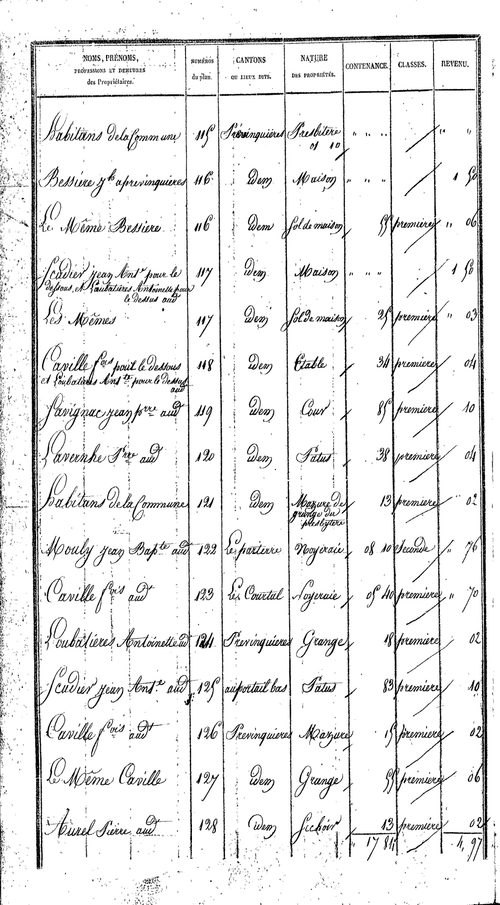 NOMS, PRÉNOMS, PROFESSIONS ET DEMEURES des Propriétaires. | NUMÉROS du plan. | CANTONS OU LIEUX DITS. | NATURE DES PROPRIÉTÉS. | CONTENANCE. | CLASSES. | REVENU.
habitans de la Commune 115 Prévinquieres Presbitere " " " " "
01 10
Bessiere a previnquieres 116 idem Maison " " " 1 50
Le Même Bessiere 116 idem Sol de maison 55 première " 06
Scudier jean Ant.e pour le 117 idem Maison " " " 1 50
dessous, et Loubatieres Antoinette pour
le dessus aud
Les Mêmes 117 idem Sol de maison 25 première " 03
Caville f.ois pour le dessous 118 idem Etable 34 première 04
et Loubatieres Ant.te pour le dessus
aud
Savignac jean p.rre aud 119 idem Cour 85 première 10
Lavernhe P.rre aud 120 idem Patus 38 première 04
habitans de la Commune 121 idem Mazure de 13 première 02
grange du
presbytere
Mouly jean Bap.te aud 122 Le partierre Noyeraie 08 10 Seconde " 76
Caville f.ois aud 123 Le Courtal Noyeraie 05 40 première " 70
Loubatieres Antoinette aud 124 Previnquieres Grange 18 première 02
Scudier jean Ant.e aud 125 au portail bas Patus 83 première 10
Caville f.ois aud 126 Previnquieres Mazure 15 première 02
Le Même Caville 127 idem Grange 55 première 06
Aurel Pierre aud 128 idem Sechoir 13 première 02
" 17 84 4, 97